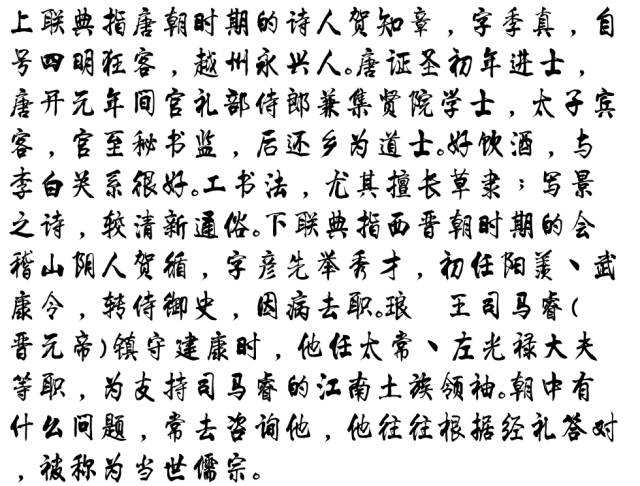 上联典指唐朝时期的诗人贺知章，字季真，自
号四明狂客，越州永兴人。唐证圣初年进士，
唐开元年间官礼部侍郎兼集贤院学士，太子宾
客，官至秘书监，后还乡为道士。好饮酒，与
李白关系很好。工书法，尤其擅长草隶；写景
之诗，较清新通俗。下联典指西晋朝时期的会
稽山阴人贺循，字彦先举秀才，初任阳羡、武
康令，转侍御史，因病去职。琅　王司马睿(
晋元帝)镇守建康时，他任太常、左光禄大夫
等职，为支持司马睿的江南土族领袖。朝中有
什么问题，常去咨询他，他往往根据经礼答对
，被称为当世儒宗。